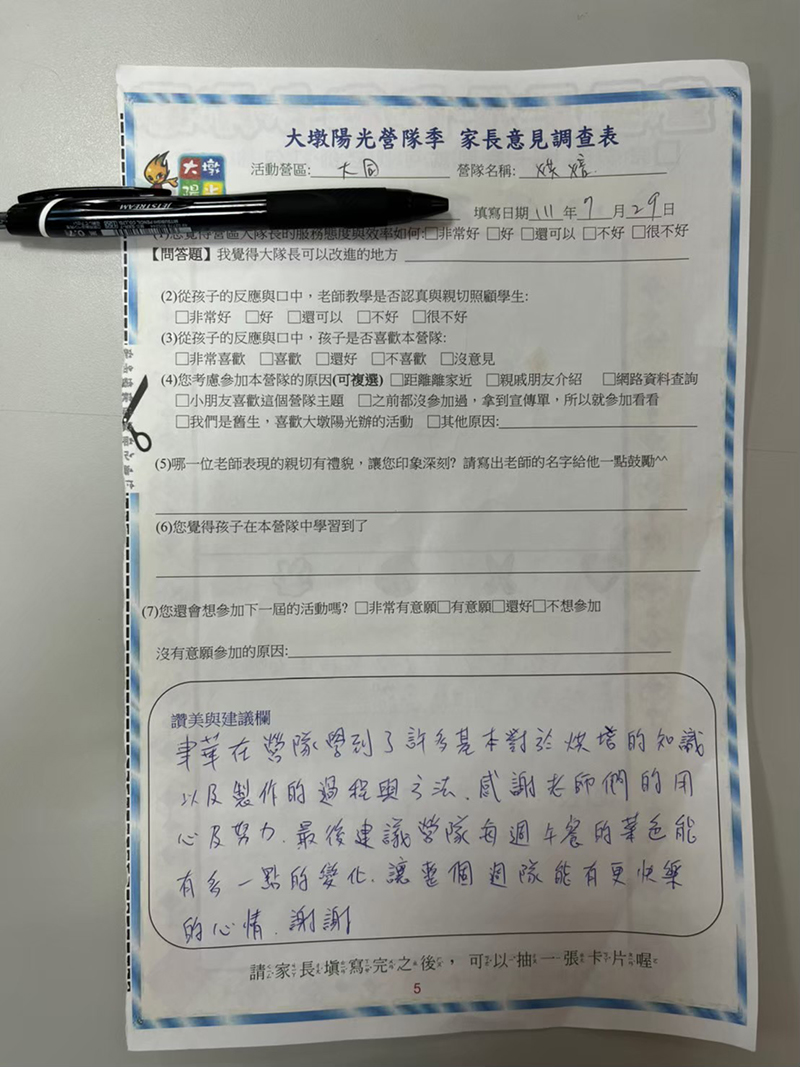 大墩陽光營隊季 家長意見調查表
大墩
活動營區: 大同 營隊名稱: 烘焙
填寫日期 111 年 7 月 29 日
(1)您覺得營區大隊長的服務態度與效率如何:□非常好 □好 □還可以 □不好 □很不好
【問答題】我覺得大隊長可以改進的地方
(2)從孩子的反應與口中，老師教學是否認真與親切照顧學生:
□非常好 □好 □還可以 □不好 □很不好
(3)從孩子的反應與口中，孩子是否喜歡本營隊:
□非常喜歡 □喜歡 □還好 □不喜歡 □沒意見
(4)您考慮參加本營隊的原因(可複選) □距離離家近 □親戚朋友介紹 □網路資料查詢
□小朋友喜歡這個營隊主題 □之前都沒參加過，拿到宣傳單，所以就參加看看
□我們是舊生，喜歡大墩陽光辦的活動 □其他原因:
(5)哪一位老師表現的親切有禮貌，讓您印象深刻? 請寫出老師的名字給他一點鼓勵^^
(6)您覺得孩子在本營隊中學習到了
(7)您還會想參加下一屆的活動嗎? □非常有意願□有意願□還好□不想參加
沒有意願參加的原因:
讚美與建議欄
聿華在營隊學到了許多基本對於烘培的知識
以及製作的過程與方法、感謝老師們的用
心及努力.最後建議營隊每週午餐的菜色能
有多一點的變化.讓整個週隊能有更快樂
的心情.謝謝
請家長填寫完之後，可以抽一張卡片喔
5
JETSTREAM